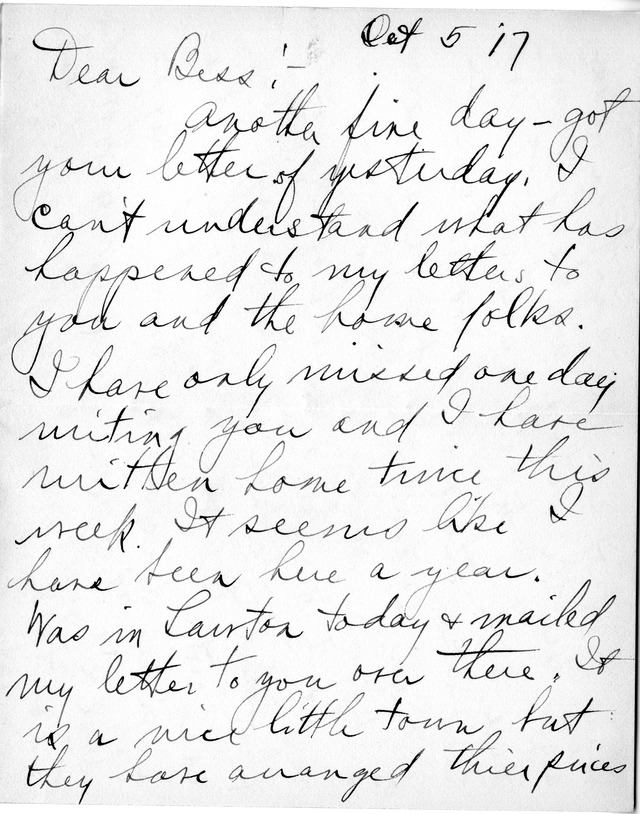 Oct 5 '17
Dear Bess:-
Another fine day - got
your letter of yesterday. I
can't understand what has
happened to my letters to
you and the home folks.
I have only missed one day
writing you and I have
written home twice this
week. It seems like I
have been here a year.
Was in Lawton today & mailed
my letter to you over there. It
is a nice little town but
they have arranged thier prices